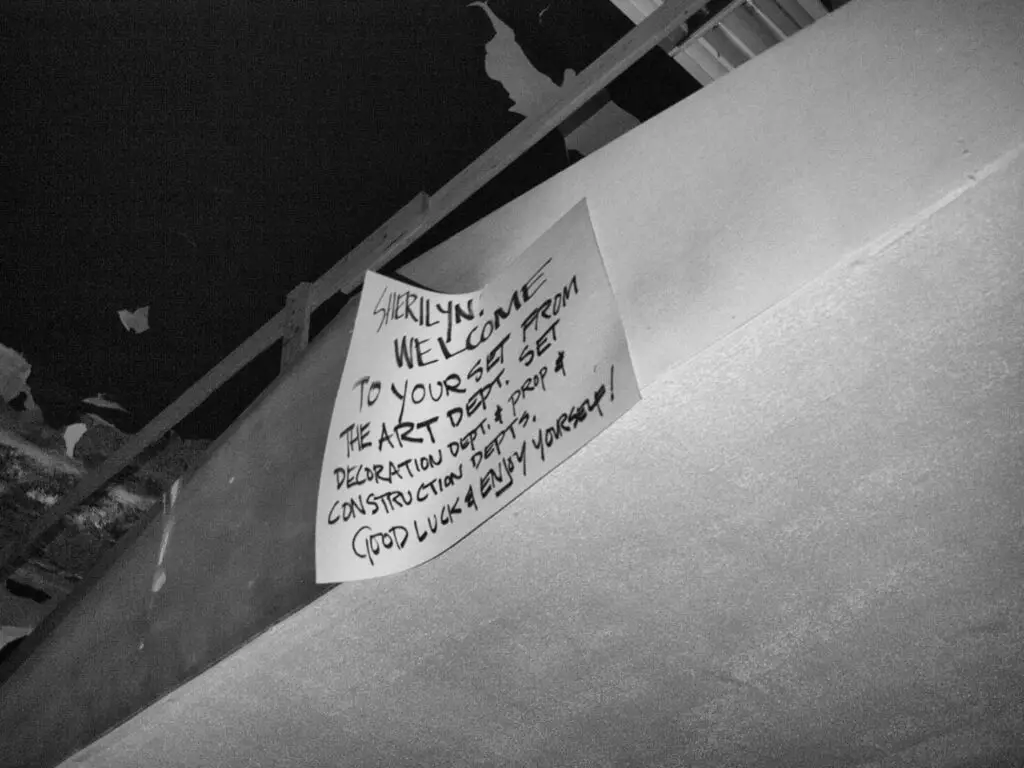 SHERILYN.
WELCOME
TO YOUR SET FROM
THE ART DEPT. SET
DECORATION DEPT. & PROP &
CONSTRUCTION DEPTS.
GOOD LUCK & ENJOY YOURSELF!